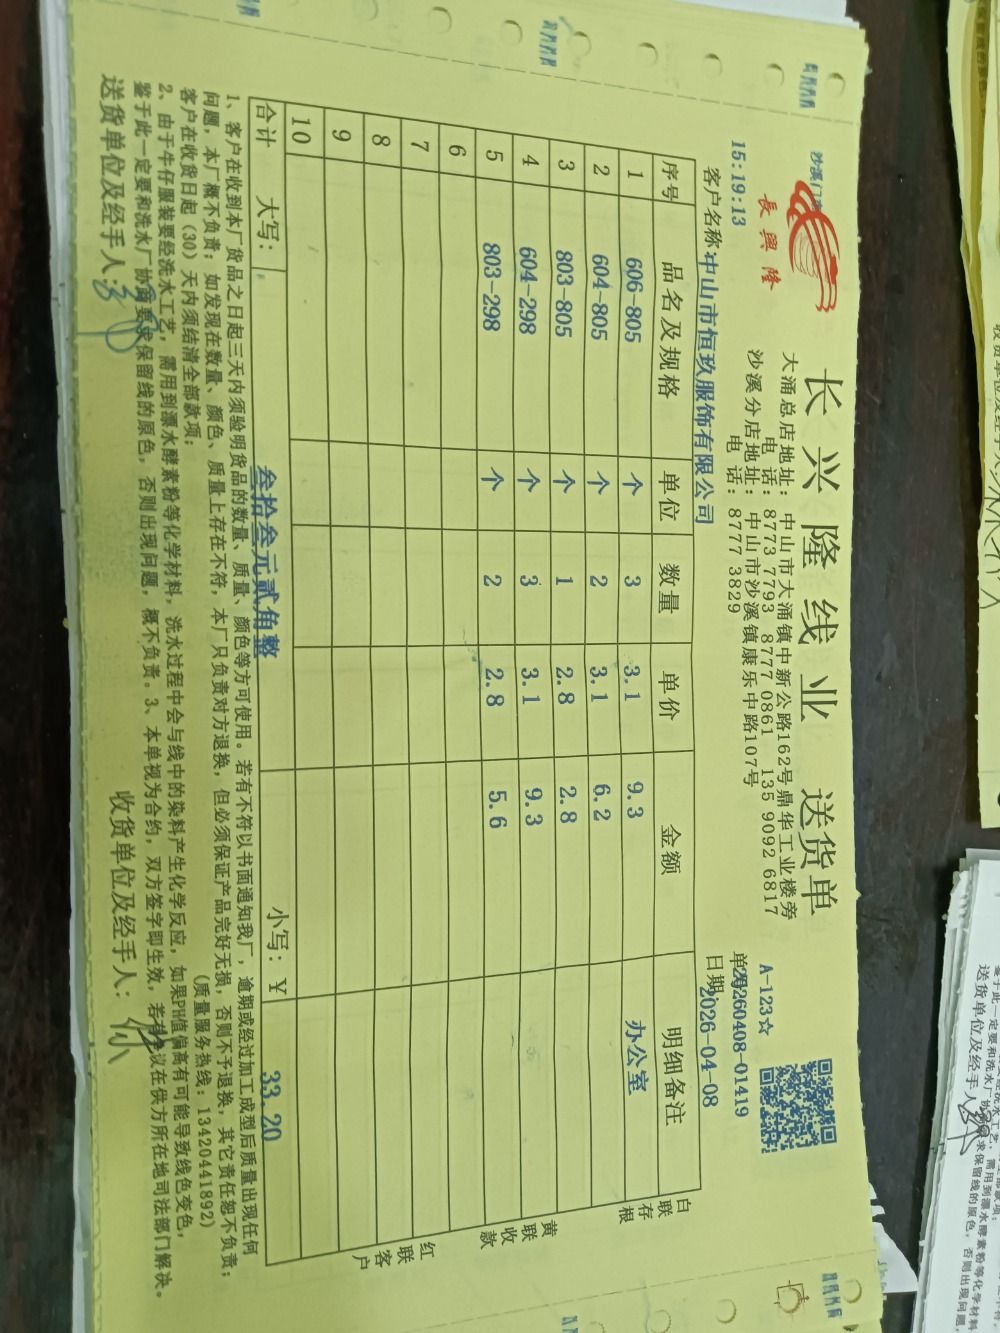 長興隆
长兴隆线业 送货单
大涌总店地址：中山市大涌镇中新公路162号鼎华工业楼旁
电 话：8773 7793 8777 0861 135 9092 6817
沙溪分店地址：中山市沙溪镇康乐中路107号
电 话：8777 3829
A-123☆
15:19:13
单号20260408-01419
客户名称 中山市恒玖服饰有限公司
日期 2026-04-08
序号 品名及规格 单位 数量 单价 金额 明细备注
1 606-805 个 3 3.1 9.3 办公室
2 604-805 个 2 3.1 6.2
3 803-805 个 1 2.8 2.8
4 604-298 个 3 3.1 9.3
5 803-298 个 2 2.8 5.6
6
7
8
9
10
合计 大写： 叁拾叁元贰角整 小写：￥ 33.20
白联存根
黄联收款
红联客户
1、客户在收到本厂货品之日起三天内须验明货品的数量、质量、颜色等方可使用。若有不符以书面通知我厂，逾期或经过加工成型后质量出现任何
问题，本厂概不负责；如发现在数量、颜色、质量上存在不符，本厂只负责对方退换，但必须保证产品完好无损，否则不予退换，其它责任恕不负责；
客户在收货日起(30)天内须结清全部款项；
(质量服务热线：13420441892)
2、由于牛仔服装要经洗水工艺，需用到漂水酵素粉等化学材料，洗水过程中会与线中的染料产生化学反应，如果PH值偏高有可能导致线色变色，
鉴于此一定要和洗水厂协商要求保留线的原色，否则出现问题，概不负责。3、本单视为合约，双方签字即生效，若有争议在供方所在地司法部门解决。
送货单位及经手人：
收货单位及经手人：